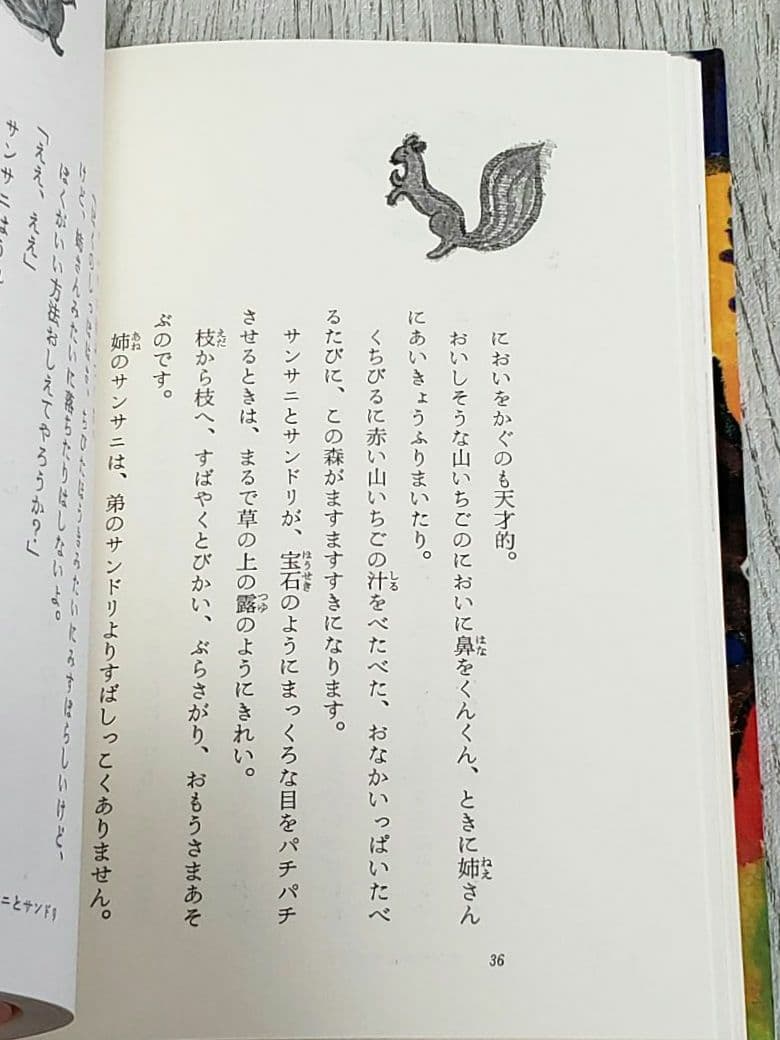 においをかぐのも天才的。
おいしそうな山いちごのにおいに鼻をくんくん、ときに姉さん
にあいきょうふりまいたり。
くちびるに赤い山いちごの汁をべたべた、おなかいっぱいたべ
るたびに、この森がますますすきになります。
サンサニとサンドリが、宝石のようにまっくろな目をパチパチ
させるときは、まるで草の上の露のようにきれい。
枝から枝へ、すばやくとびかい、ぶらさがり、おもうさまあそ
ぶのです。
姉のサンサニは、弟のサンドリよりすばしっこくありません。
36
けど、姉さんみたいに落ちたりはしないよ。
ぼくがいい方法おしえてやろうか?」
「ええ、ええ」
サンサニは
ニとサンドリ